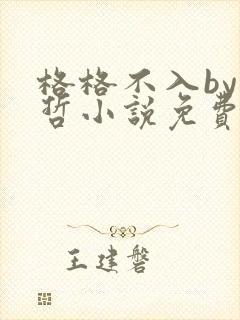 格格不入by
哲小說免費
王建磐